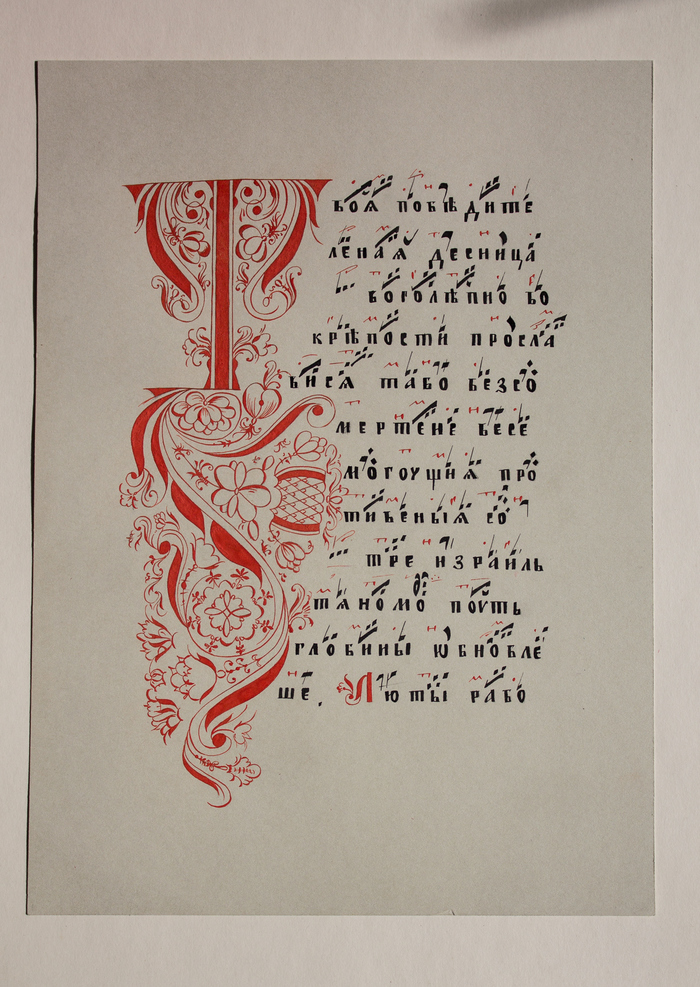 Твоѧ побѣдите
леная десница
боголѣпно во
крѣпости просла
вися табо безсо
мертене весе
могоущиѧ про
тивеныѧ со
тре израиль
тѧномо поуть
глобины юбновле
ше. Люты рабо